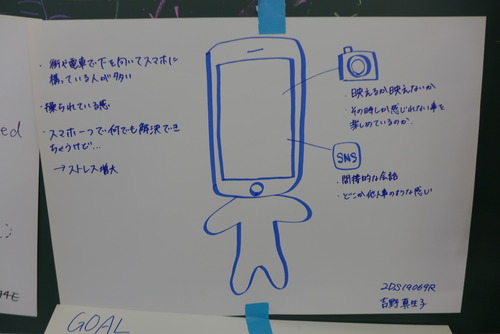 ・街や電車で下を向いてスマホに
構っている人が多い
・操られている感
・スマホ一つで何でも解決でき
ちゃうけど…
→ストレス増大
・映えるか映えないか
・その時しか感じれない事を
楽しめているのか.
SNS
・間接的な会話
・どこか他人事のような感じ
2DS19069R
吉野真生子
ed
94E
GOAL